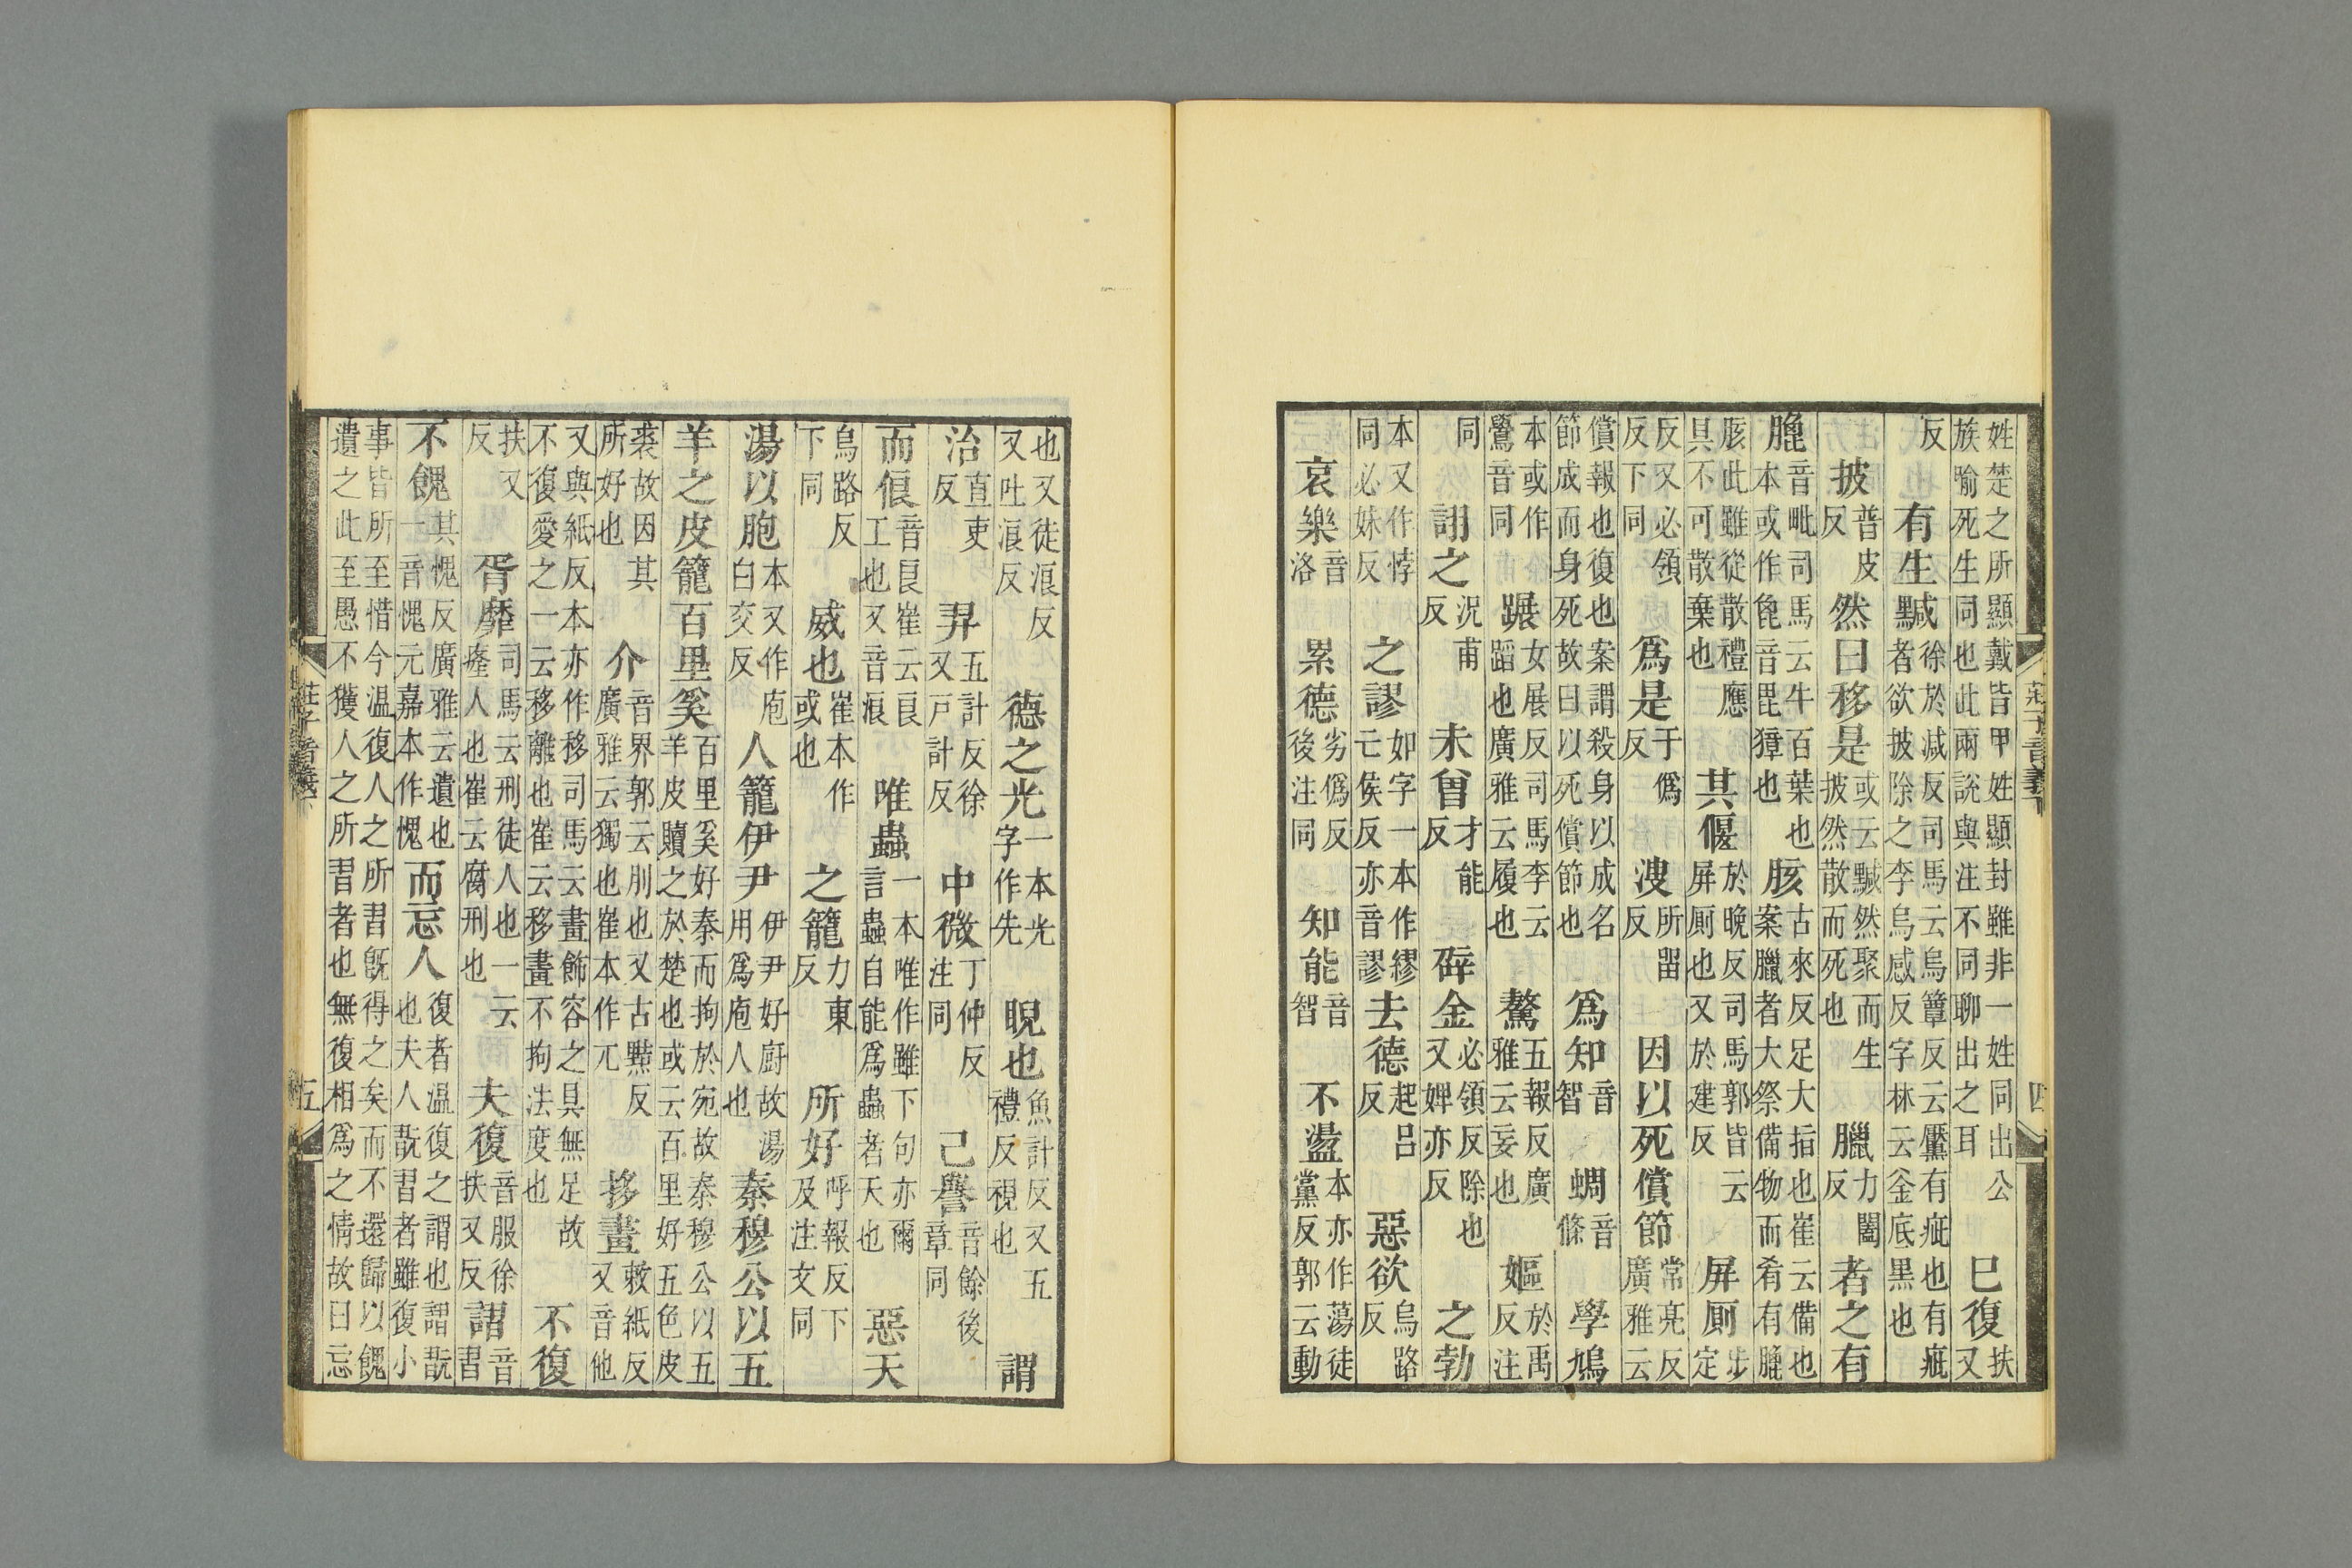 莊子音義下 四
姓楚之所顯戴皆甲姓顯封雖非一姓同出公族喻死生同也此兩說與注不同聊出之耳 已復扶又
反 有生黬徐於減反司馬云烏簟反云黶有疵也有疵者欲披除之李烏感反字林云釜底黑也
披普皮反 然曰移是或云黬然聚而生披然散而死也 臘力闔反 者之有
膍音毗司馬云牛百葉也本或作毞音毘獐也 胲古來反足大指也崔云備也案臘者大祭備物而肴有膍
胲此雖從散禮應具不可散棄也 其偃於晚反司馬郭皆云屏厠也又於建反 屏厠步定
反又必領反下同 爲是于僞反 溲所畱反 因以死償節常亮反廣雅云
償報也復也案謂殺身以成名節成而身死故曰以死償節也 爲知音智 蜩音條 學鳩
本或作鷽音同 蹍女展反司馬李云蹈也廣雅云履也 驁五報反廣雅云妄也 嫗於禹反注
同 詡之況甫反 未曾才能反 辟金必領反除也又婢亦反 之勃
本又作悖同必妹反 之謬如字一本作繆亡侯反亦音謬 去德起呂反 惡欲烏路反
哀樂音洛 累德劣僞反後注同 知能音智 不盪本亦作蕩徒黨反郭云動
也又徒浪反又吐浪反 德之光一本光字作先 睨也魚計反又五禮反視也 謂
治直吏反 羿五計反徐又戸計反 中微丁仲反注同 己譽音餘後章同
而俍音良崔云良工也又音浪 唯蟲一本唯作雖下句亦爾言蟲自能爲蟲者天也 惡天
烏路反下同 威也崔本作或也 之籠力東反 所好呼報反下及注文同
湯以胞本又作庖白交反 人籠伊尹伊尹好廚故湯用爲庖人也 秦穆公以五
羊之皮籠百里奚百里奚好秦而拘於宛故秦穆公以五羊皮贖之於楚也或云百里好五色皮
裘故因其所好也 介音界郭云刖也又古黠反廣雅云獨也崔本作兀 拸畫敕紙反又音他
又與紙反本亦作移司馬云畫飾容之具無足故不復愛之一云移離也崔云移畫不拘法度也 不復
扶又反 胥靡司馬云刑徒人也一云癃人也崔云腐刑也 夫復音服徐扶又反 謵音習
不餽其愧反廣雅云遺也一音愧元嘉本作愧 而忘人復者温復之謂也謵翫也夫人翫習者雖復小
事皆所至惜今温復人之所習旣得之矣而不還歸以餽遺之此至愚不獲人之所習者也無復相爲之情故曰忘
莊子音義下 五